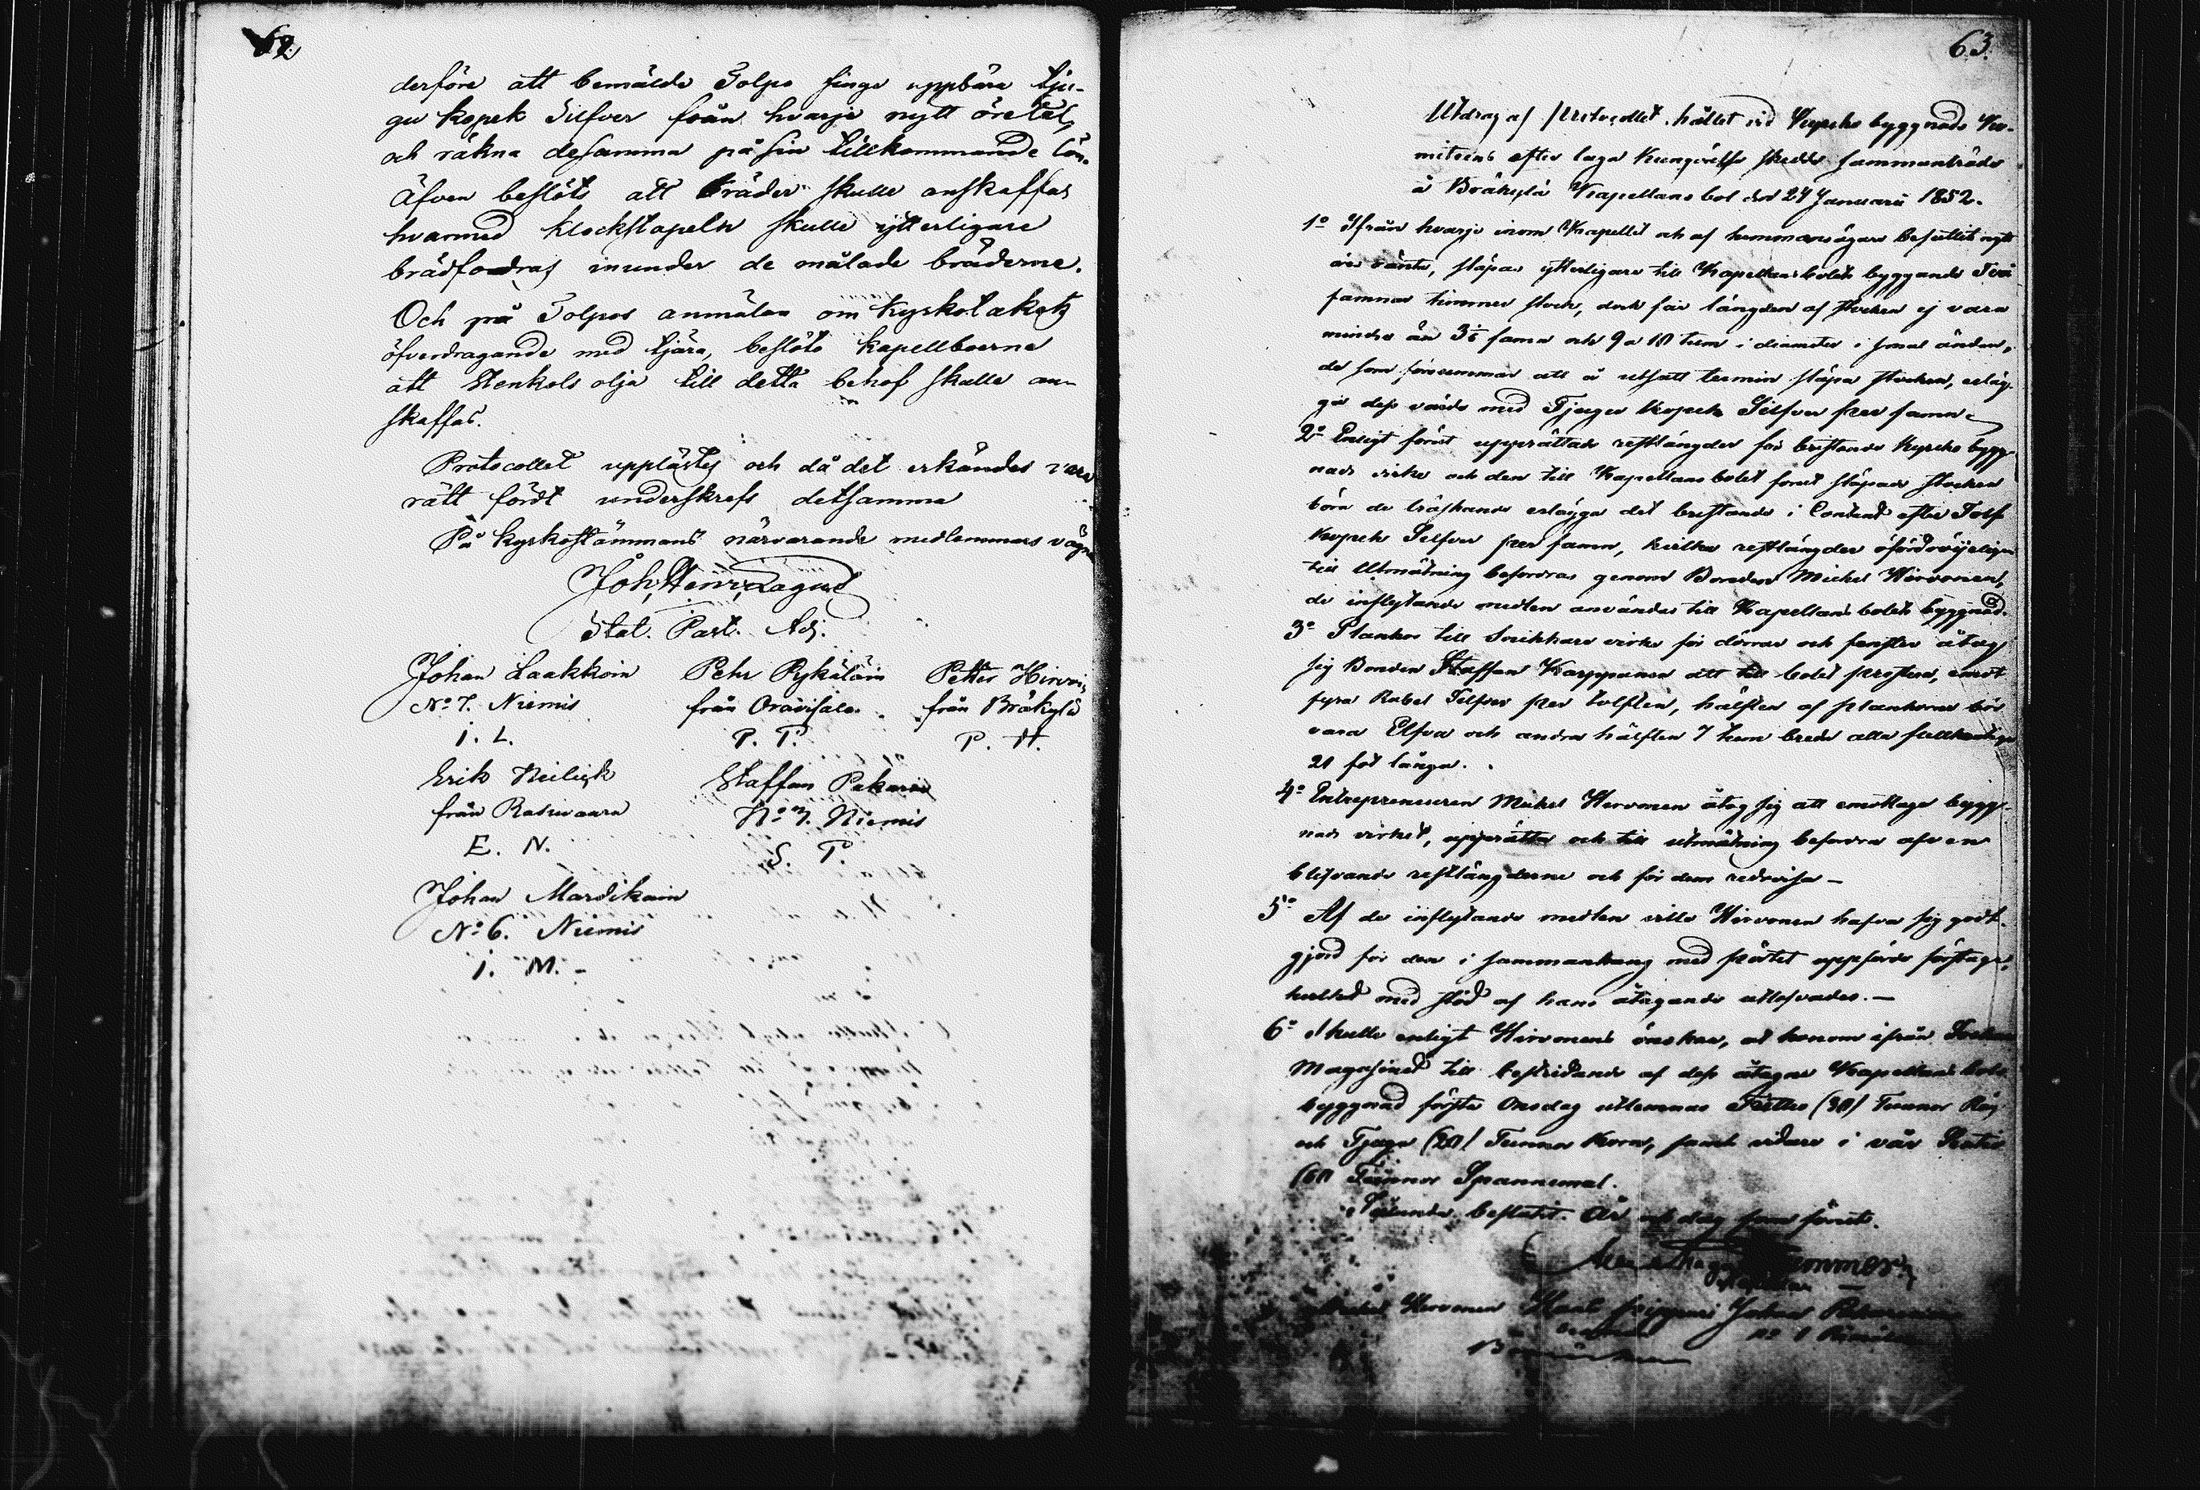 62
derföre att bemälde Tolpo finge uppbära tju-
gu kopek Silfver från hvarje nytt öretal,
och räkna desamma på sin tillkommande lön.
Äfven beslöts att bräder skulle anskaffas
hvarmed klockstapeln skulle ytterligare
brädfodras inunder de målade bräderne.
Och på Tolpos anmälan om kyrkotakets
öfverdragande med tjära, beslöto kapellboerne
att Stenkols olja till detta behof skulle an-
skaffas.
Protocollet upplästes och då det erkändes vara
rätt fördt underskrefs detsamma
På kyrkostämmans närvarande medlemmars vägnar
Joh. Henr. Lagus
Stat. Past. Adj.
Johan Laakkoin Pehr Pykäläin Petter Hirvoin
No 7. Niemis från Oravisalo från Bräkylä
J. L. P. P. P. H.
Erik Heiligk Staffan Pakarin
från Rasivaara No 3. Niemis
E. N. S. P.
Johan Mardikain
No 6. Niemis
J. M. -
63.
Utdrag af Protocollet, hållet vid Kyrko byggnads Ko-
miteens efter laga kungörelse skedde sammanträde
å Bräkylä Kapellans bol den 24 Januarii 1852.
1o Ifrån hvarje inom Kapellet och af hemmansägare besuttit nytt
öres ränta, släpas ytterligare till Kapellansbolets byggande Två
famnar timmer stock, dock får längden af stocken ej vara
mindre än 3½ famn och 9 a 10 tum i diameter i smal ändan,
de som försummar att å utsatt termin släpa stocken, erläg-
ga dess värde med Tjugo kopek Silfver per famn.
2o Enligt förut upprättade restlängder för bristande kyrko bygg-
nads virke och den till Kapellans bolet förut släpade stocken
böra de tröskande erlägga det bristande i Contant efter Tolf
kopek Silfver per famn, hvilka restlängder ofördröjeligen
till Utmätning befordras genom Bonden Mickel Hirvonen,
de inflytande medlen användes till Kapellans bolets byggnad.
3o Plankor till Snikkare virke för dörrar och fenster åtog
sig Bonden Staffan Karppanen att till bolet prestera, emot
fyra Rubel Silfver per tolften, hälften af plankorna bör
vara Elfva och andra hälften 7 tum breda alla fullkantiga
21 fot långa.
4o Entrepreneuren Mickel Hirvonen åtog sig att emottaga bygg-
nads virket, upprätta och till utmätning befordra äfven
blifvande restlängderne och för dem redovisa —
5o Af de inflytande medlen ville Hirvonen hafva sig godt-
gjord för den i sammanhang med pörtet uppförde förstuga,
hvilket med stöd af hans åtagande utlofvades. —
6o Skulle enligt Hirvonens önskan, åt honom ifrån Socken
Magasinet till bestridande af dess åtagne Kapellans bols
byggnad första Onsdag utlemnas Trettio (30) Tunnor Råg
och Tjugo (20) Tunnor Korn, samt vidare i vår Sextio
(60) Tunnor Spannemål.
Sålunda beslutit. År och dag som förut.
Mickel Hirvonen Johan Pakarinen